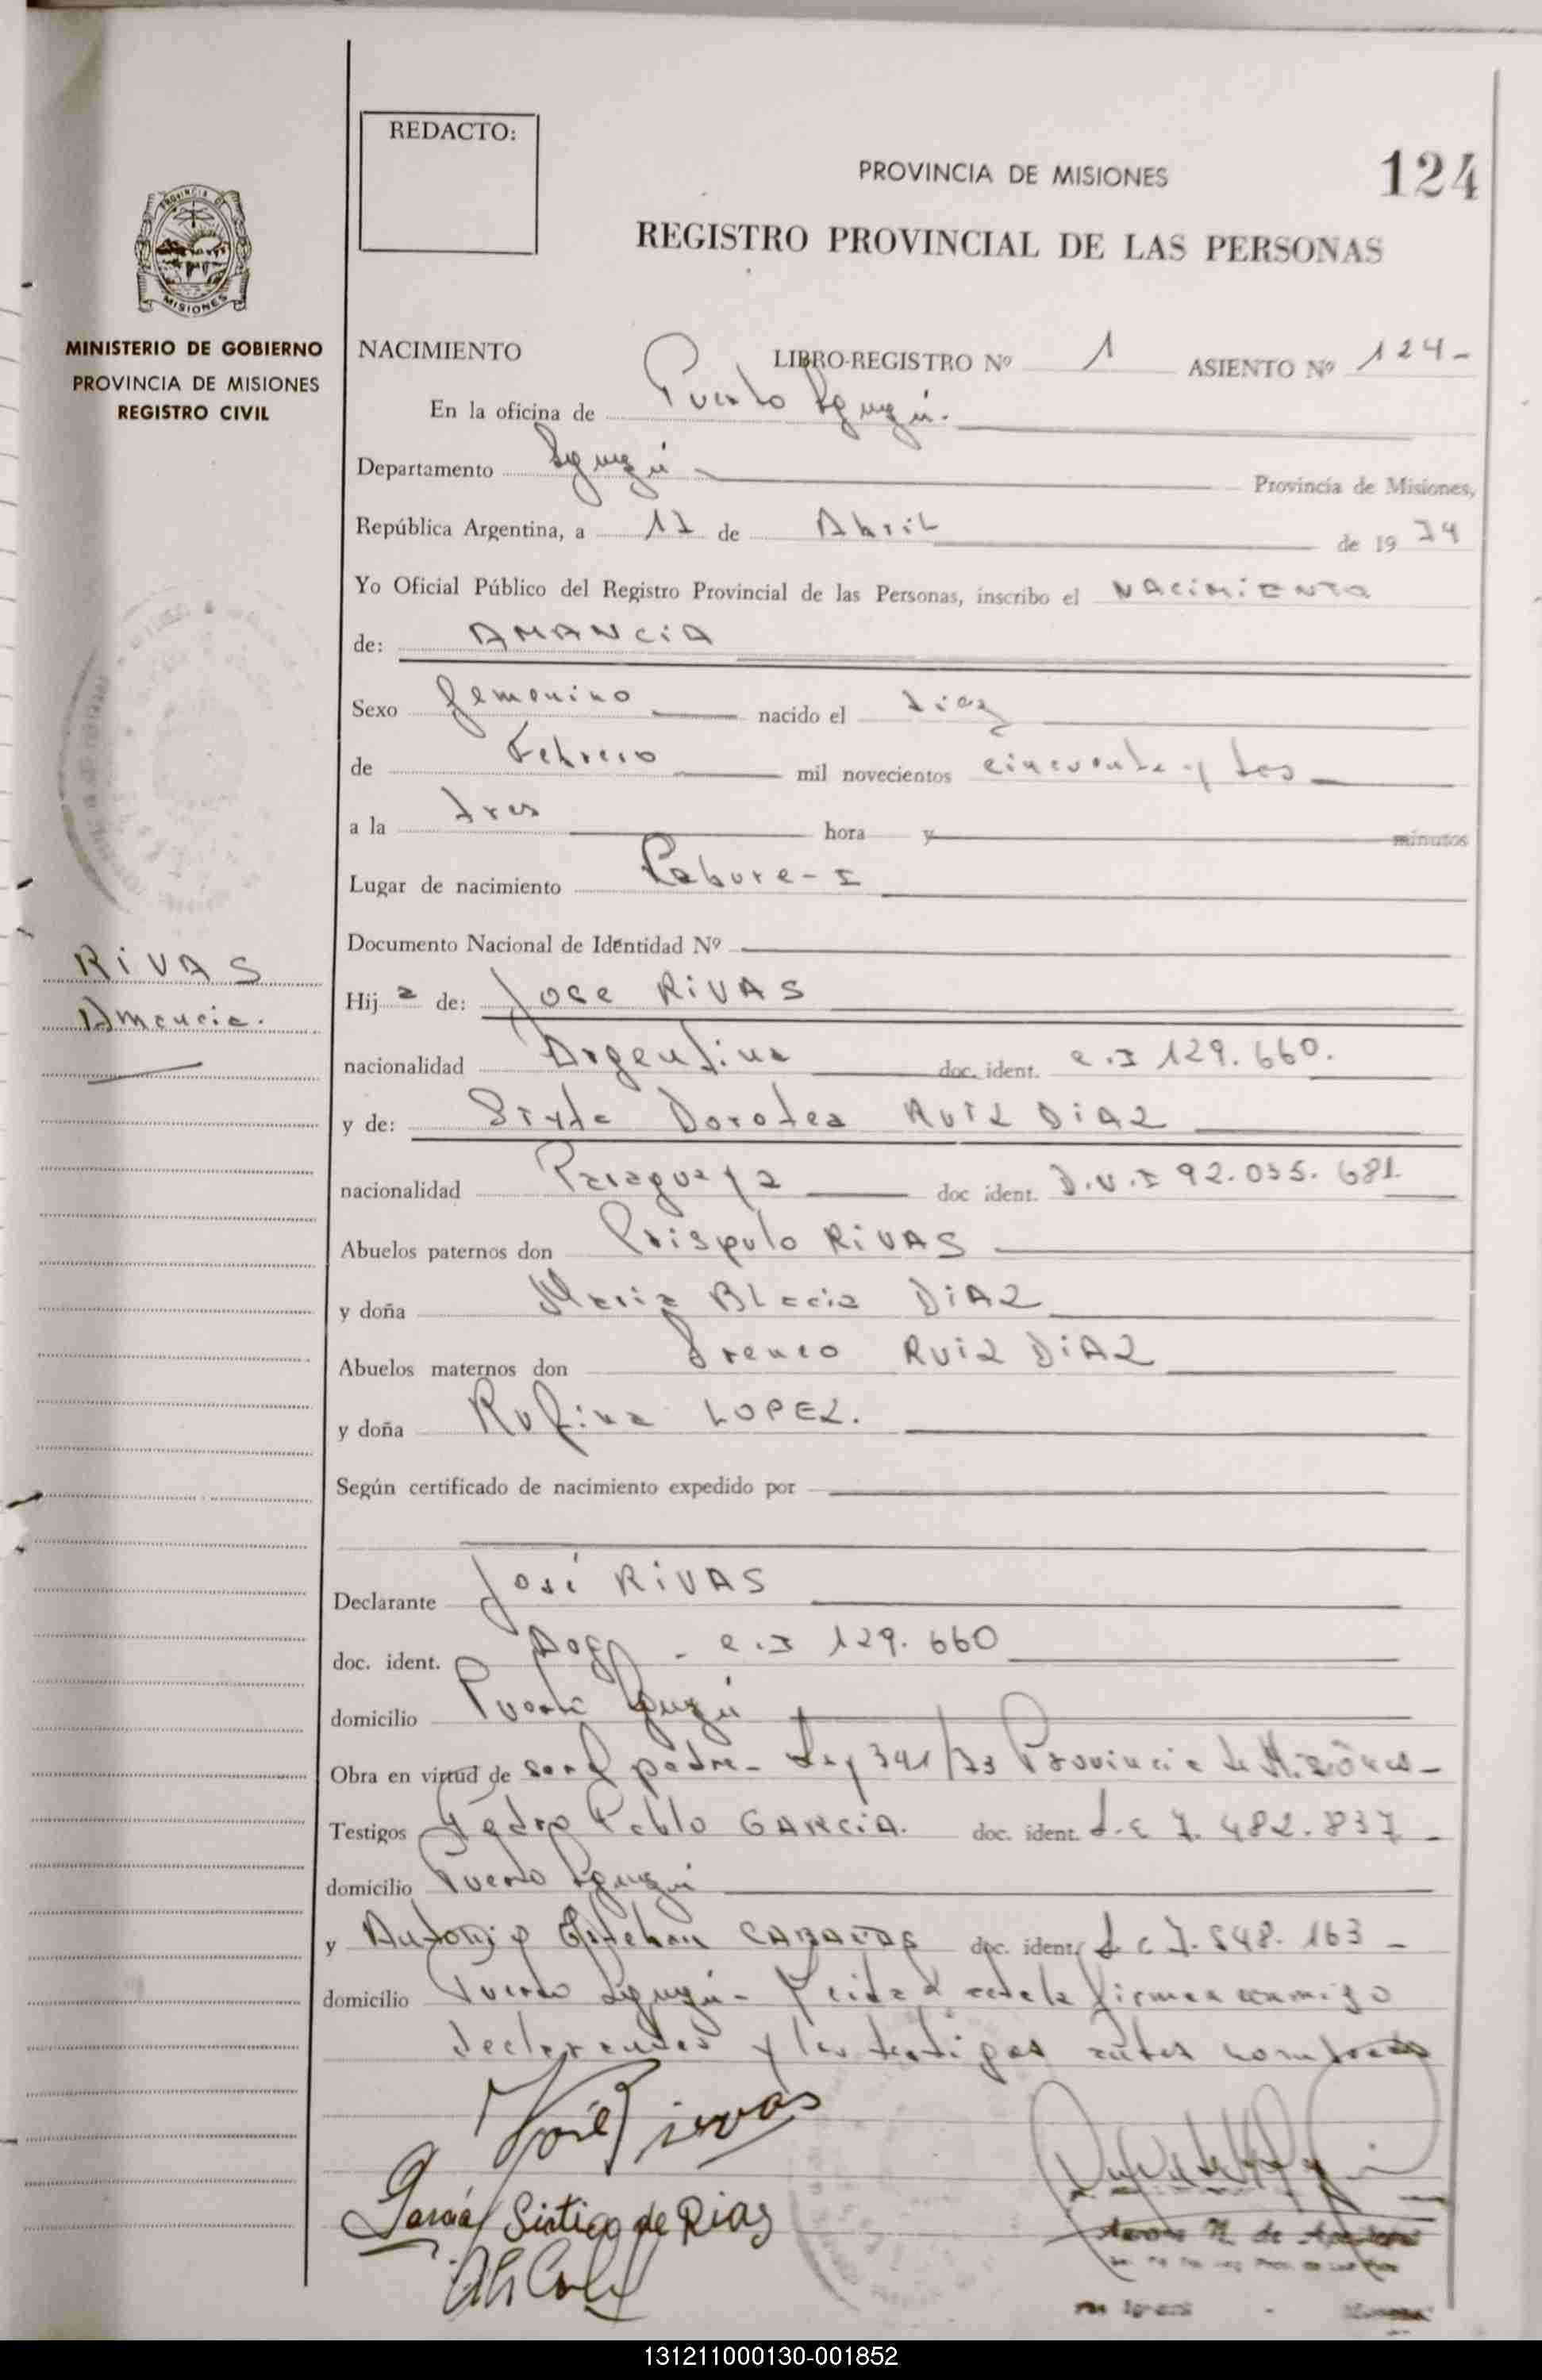 REDACTO:
PROVINCIA DE MISIONES
124
REGISTRO PROVINCIAL DE LAS PERSONAS
PROVINCIA DE
MISIONES
MINISTERIO DE GOBIERNO
PROVINCIA DE MISIONES
REGISTRO CIVIL
NACIMIENTO LIBRO-REGISTRO Nº 1 ASIENTO Nº 124-
En la oficina de Puerto Iguazú.
Departamento Iguazú Provincia de Misiones,
República Argentina, a 17 de Abril de 19 74
Yo Oficial Público del Registro Provincial de las Personas, inscribo el NACIMIENTO
de: AMANCIA
Sexo femenino nacido el diez
de Febrero mil novecientos cincuenta y dos
a la tres hora y minutos
Lugar de nacimiento Cabure-I
Documento Nacional de Identidad Nº
RIVAS
Amancia.
Hij a de: Jose RIVAS
nacionalidad Argentina doc. ident. c.I 129.660.
y de: Dorotea RUIZ DIAZ
nacionalidad Paraguaya doc ident. D.N.I 92.035.681
Abuelos paternos don Crispulo RIVAS
y doña Maria Blacia DIAZ
Abuelos maternos don RUIZ DIAZ
y doña Rufina LOPEZ.
Según certificado de nacimiento expedido por
Declarante José RIVAS
doc. ident. - c.I 129.660
domicilio Puerto Iguazú
Obra en virtud de ser el padre- Ley 341/73 Provincia de Misiones-
Testigos Pedro Pablo GARCIA. doc. ident. L.E 7.482.837-
domicilio Puerto Iguazú
y Antonio Esteban doc. ident. L E 7.548.163-
domicilio Puerto Iguazú- Leida el acta la firman conmigo
declarantes y los testigos antes nombrados
José Rivas
Garcia Sixtica de Rias
131211000130-001852